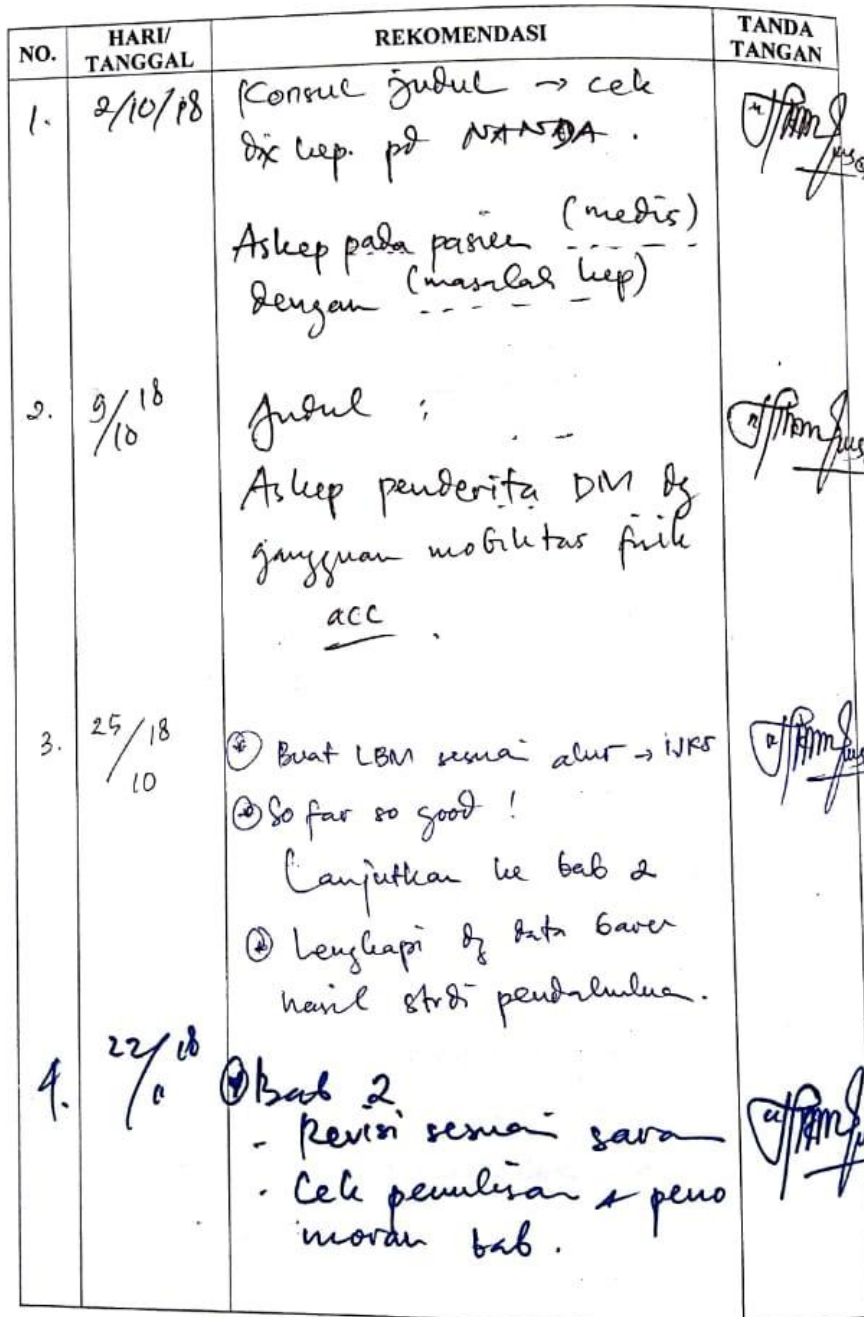 NO. HARI/ TANGGAL REKOMENDASI TANDA TANGAN
1. 2/10/18 Konsul judul → cek
dx kep. pd NANDA.
Askep pada pasien (medis)
dengan (masalah kep)
2. 9/10 18 Judul :
Askep penderita DM dg
gangguan mobilitas fisik
acc.
3. 25/10 18 Buat LBM sesuai alur →
So far so good !
Lanjutkan ke bab 2
Lengkapi dg data
hasil studi pendahuluan.
4. 22/11 18 Bab 2
- Revisi sesuai saran
- Cek penulisan + peno
moran bab.